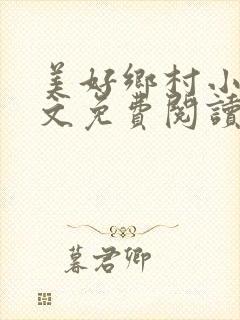 美好鄉村小
文免費閱讀
暮君卿